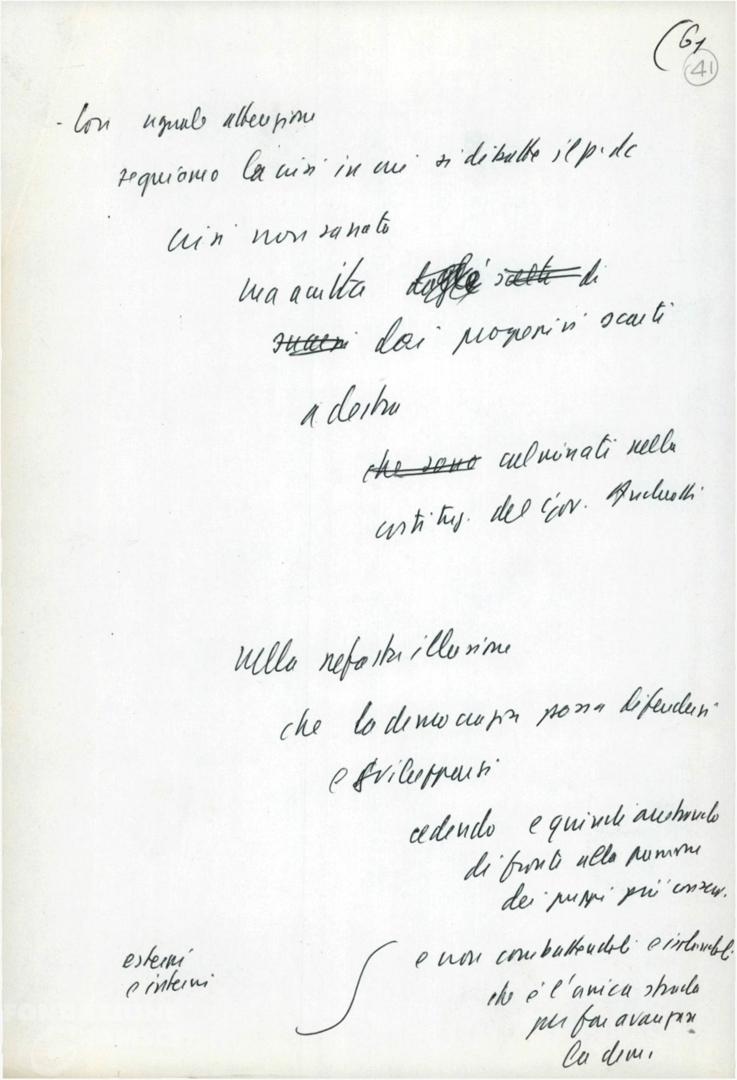 (61
41
- Con uguale attenzione
seguiamo la crisi in cui si dibatte il p. dc
crisi non sanata
ma acuita dagli scelte di
dai progressivi scarti
a destra
che sono culminati nella
costituz. del gov. Andreotti
nella nefasta illusione
che la democrazia possa difendersi
e svilupparsi
cedendo e quindi arretrando
di fronte alla pressione
dei gruppi più conserv.
esterni
e interni
e non combattendoli e isolandoli
che è l'unica strada
per far avanzare
la dem.